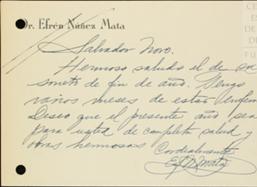 Dr. Efrén Núñez Mata
Salvador Novo.
Hermoso saludo el de su
soneto de fin de año. Tengo
varios meses de estar enfermo
Deseo que el presente año sea
para usted de completa salud y
obras hermosas
Cordialmente